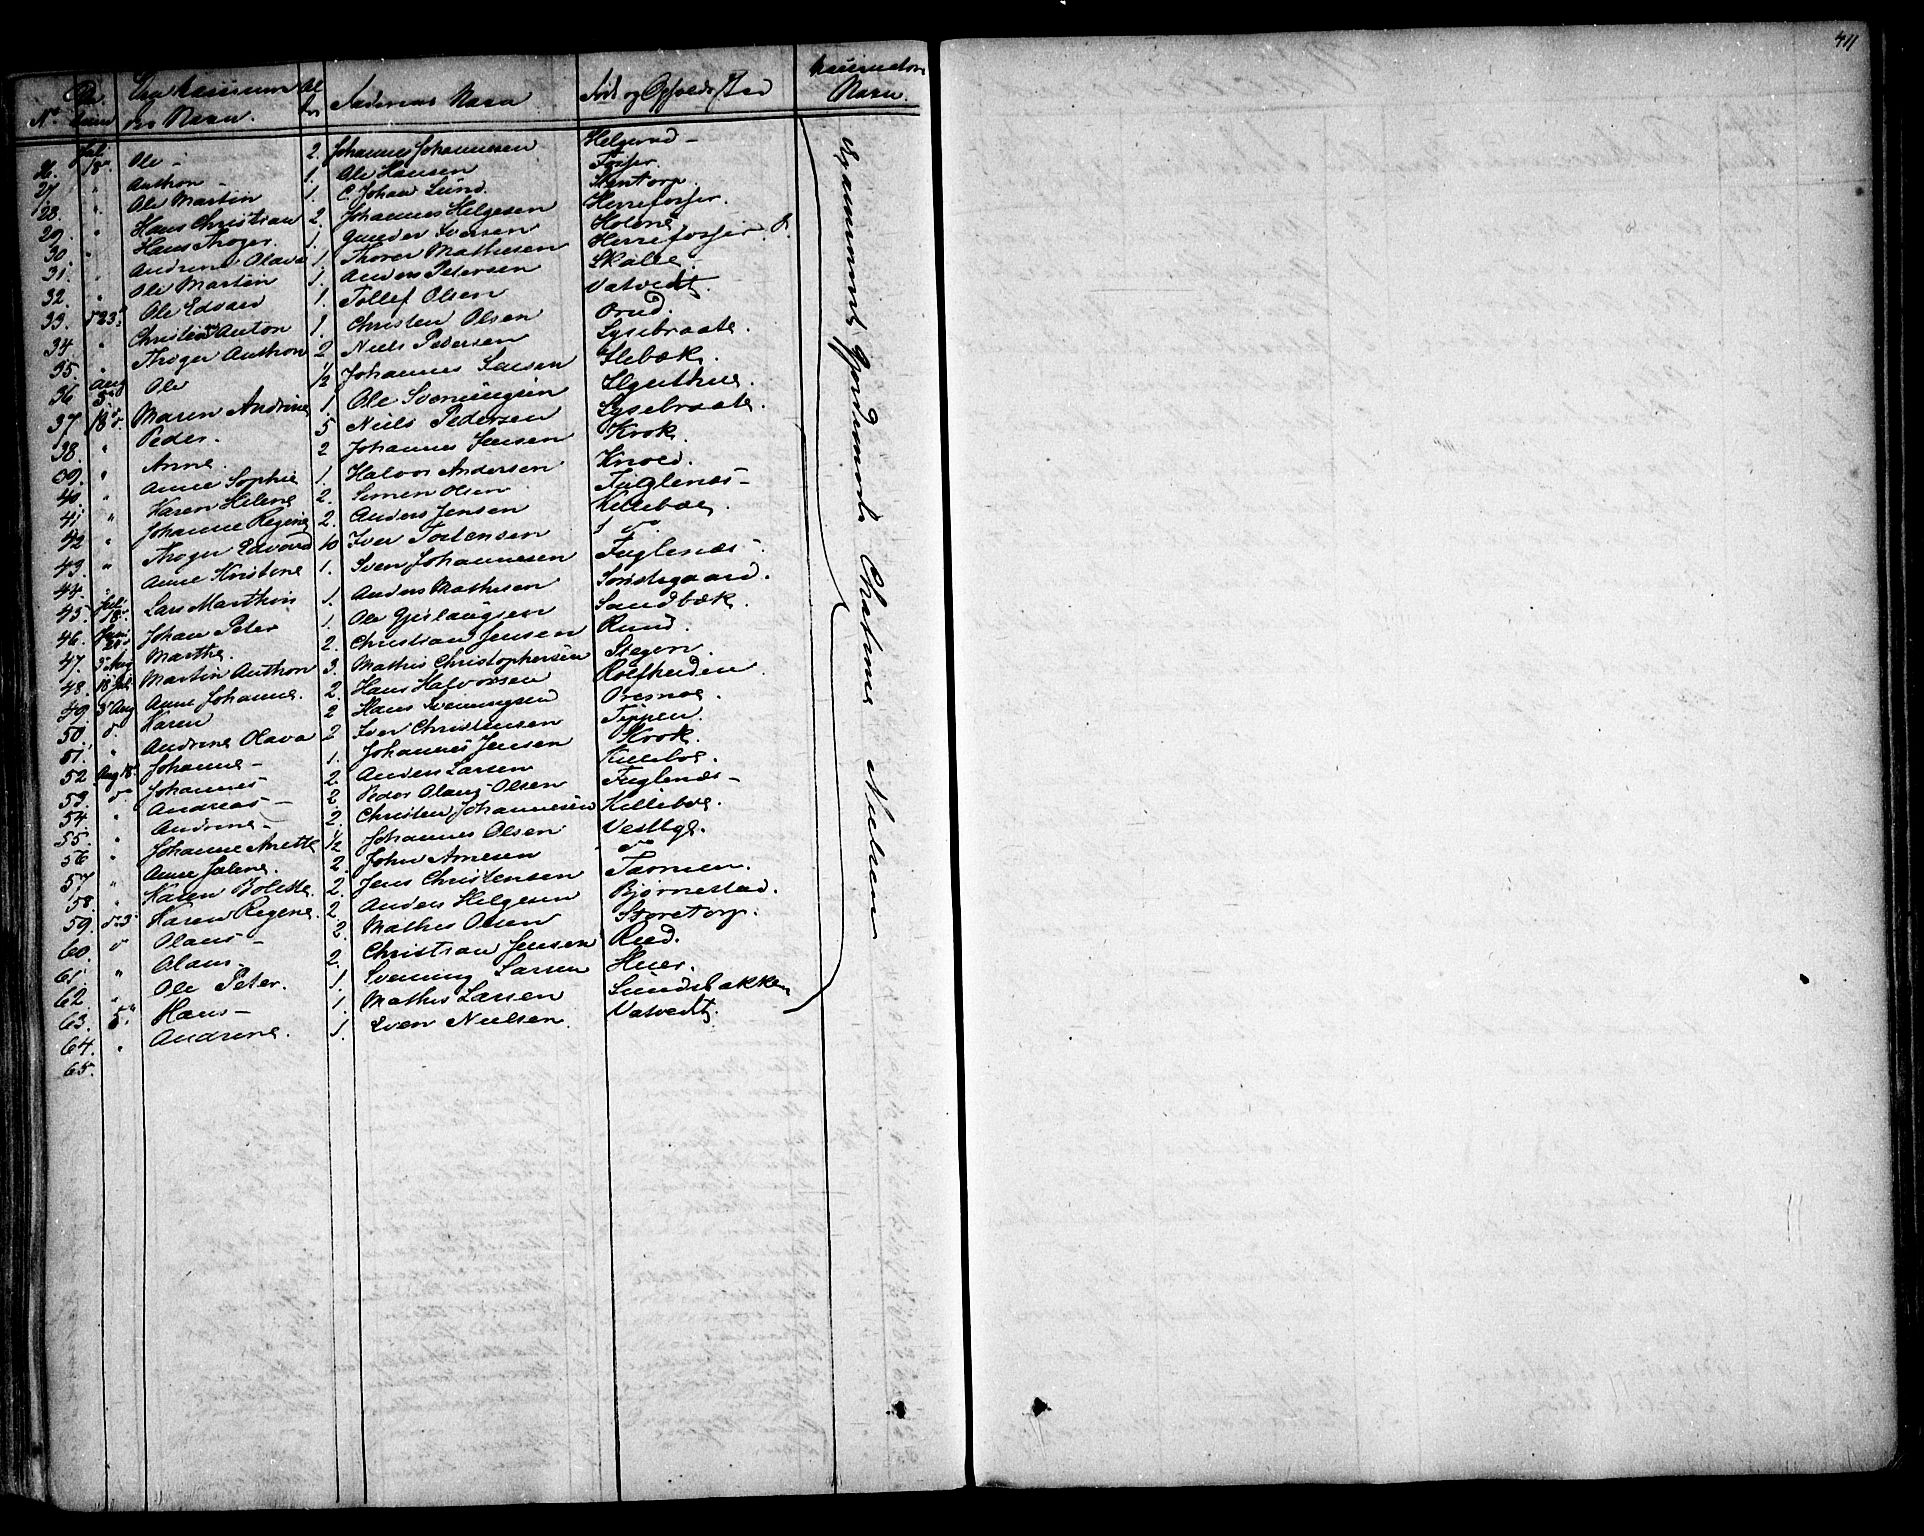 411
No Da- Vaccinerede Al- Faderens Navn Føde og Opholds Sted Vaccinators
tum des Navn. der Navn.
26. Jul 18. Ole - 2. Johannes Johannesen Helgerud -
27. " Anthon - 1. Ole Hansen Fosser.
28. " Ole Martin 1. C. Johan Lund. Stentorp.
29. " Hans Christian 2. Johannes Helgesen Herrefosser.
30. " Hans Thoger. 1. Gunder Iversen Holene
31. " Andrine Olava 1. Thorer Mathesen Herrefosser.
32. " Ole Martin 1. Anders Petersen Skolle.
33. Ole Edvard 1. Tollef Olsen Vatvedt.
34. " Christian Anton 1. Christen Olsen Orud.
35. " Thoger Anthon 2 Niels Pedersen Lysebraate.
36 Aug 5 Ole 1/2 Johannes Larsen Slebæk.
37 18 Maren Andrine 1. Ole Svenningsen
38. " Peder. 5 Niels Pedersen Lysebraate.
39. " Anne. 2 Johannes Jensen Krok.
40. " Anne Sophie 1. Halvor Andersen Knold.
41 " Karen Helene 2. Simen Olsen Fuglenæs -
42 " Johanne Regine 2. Anders Jensen Killeboe.
43. " Thoger Edvard 10 Iver Tostensen do
44. " Anne Kristine 1. Sven Johannesen Fuglenæs -
45. Jul 18. Lars Marthin 1. Anders Mathesen
46. Johan Peter 1. Ole Gjislaugsen Sandbæk.
47. 5 Aug Marthe. 2. Christian Jensen Ruud.
48. 18 Jul Martin Anthon 3. Mathis Christophersen Stegen.
49. 5 Aug Anne Johanne. 2. Hans Halvorsen Rolfheiden
50. d. Karen 2 Hans Svenningsen
51. " Andrine Olava 2 Iver Christensen Tippen.
52 Aug 18. Johanne - 1. Johannes Jensen Krok.
53. d Johannes 2. Anders Larsen Killeboe.
54. " Andreas - 2. Peder Olaus Olsen Fuglenæs -
55. " Andrine - 2. Christen Johannesen Killeboe.
56 " Johanne Anette 1/2 Johannes Olsen Vestbye.
57 " Anne Jolene. 2. John Arnesen do
58. " Karen Bolette. 2. Jens Christensen
59. Karen Regine. 2 Anders Helgesen Bjørnestad.
60. d Olaus - 2. Mathis Olsen Storetorp.
61. " Olaus - 2. Christian Jensen Rud.
62. " Ole Peter. 1. Svenning Larsen Huer.
63. 5. Hans - 1. Mathis Larsen Sundsbakken
64. " Andrine. 1. Sven Nielsen. Vatvedt.
65.
Gjordemoder Cathrine Nielsen